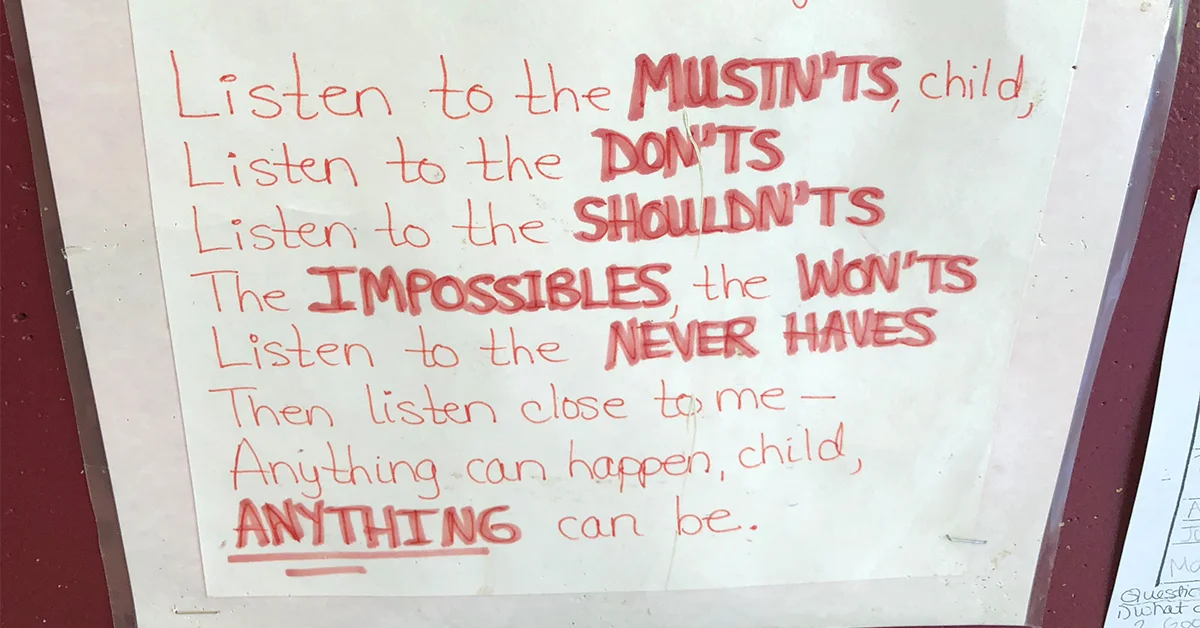 Listen to the MUSTN'TS, child,
Listen to the DON'TS
Listen to the SHOULDN'TS
The IMPOSSIBLES, the WON'TS
Listen to the NEVER HAVES
Then listen close to me—
Anything can happen, child,
ANYTHING can be.